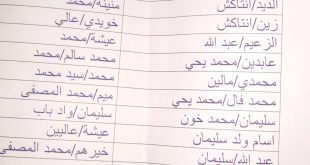 الديد/انتاكش
منينة/محمد
زين/انتاكش
خويدي/عالي
الزعيم/عبد الله
عيشة/محمد
عابدين/محمد يحي
محمد سالم/محمد
محمدي/مالين
محمد/سيد محمد
محمد فال/محمد يحي
ميم/محمد المصفى
سليمان/محمد خون
سليمان/واد باب
اسام ولد سليمان
عيشة/عاليين
عبد الله/سليمان
خير هم/محمد المصفى